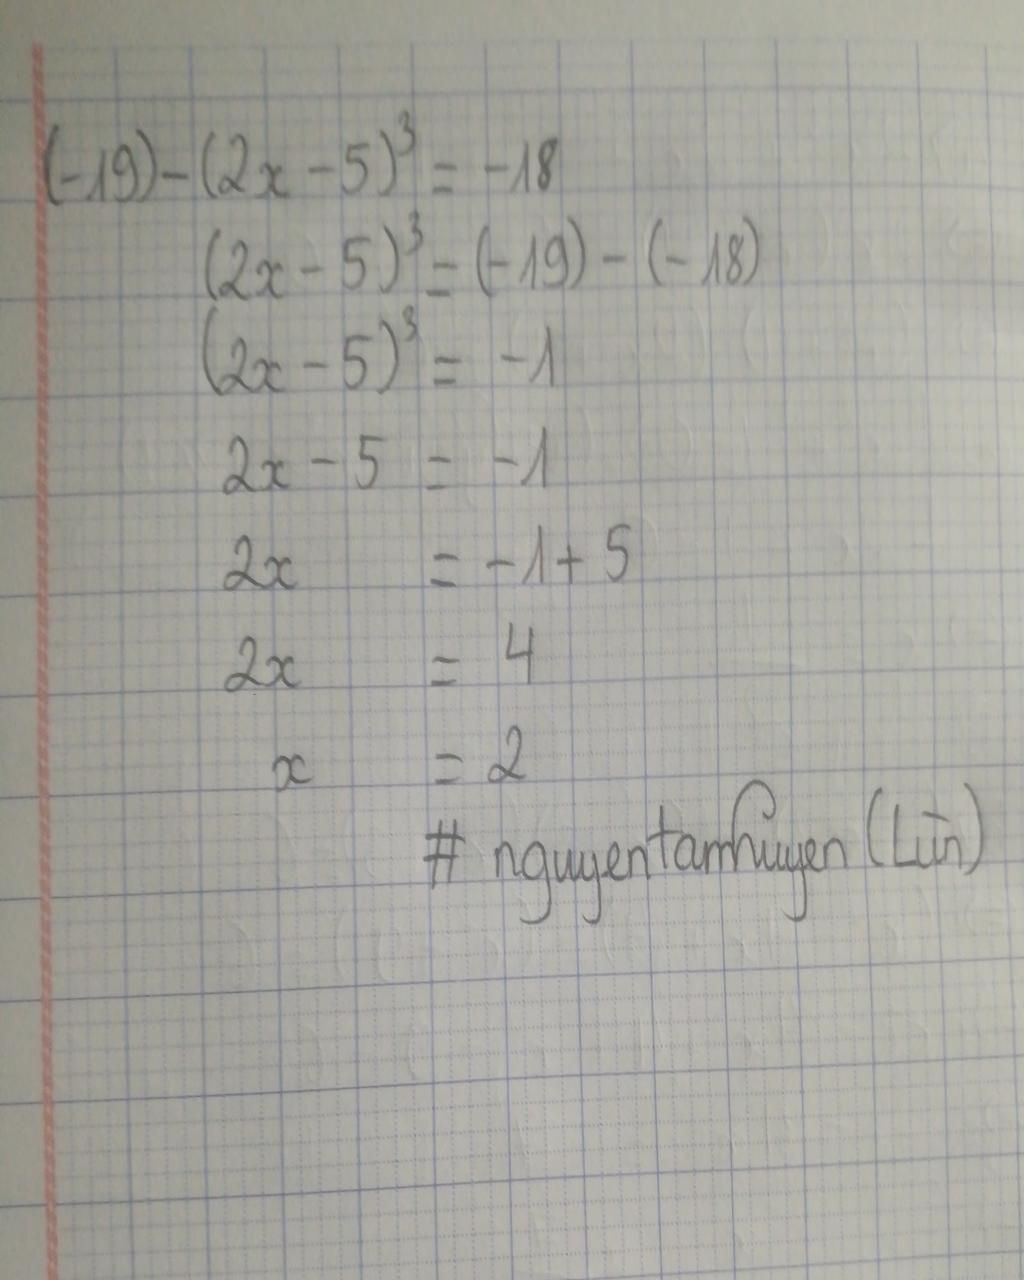 (-19) - (2x - 5)³ = -18
(2x - 5)³ = (-19) - (-18)
(2x - 5)³ = -1
2x - 5 = -1
2x = -1 + 5
2x = 4
x = 2
# nguyentamhuyen (Lùn)